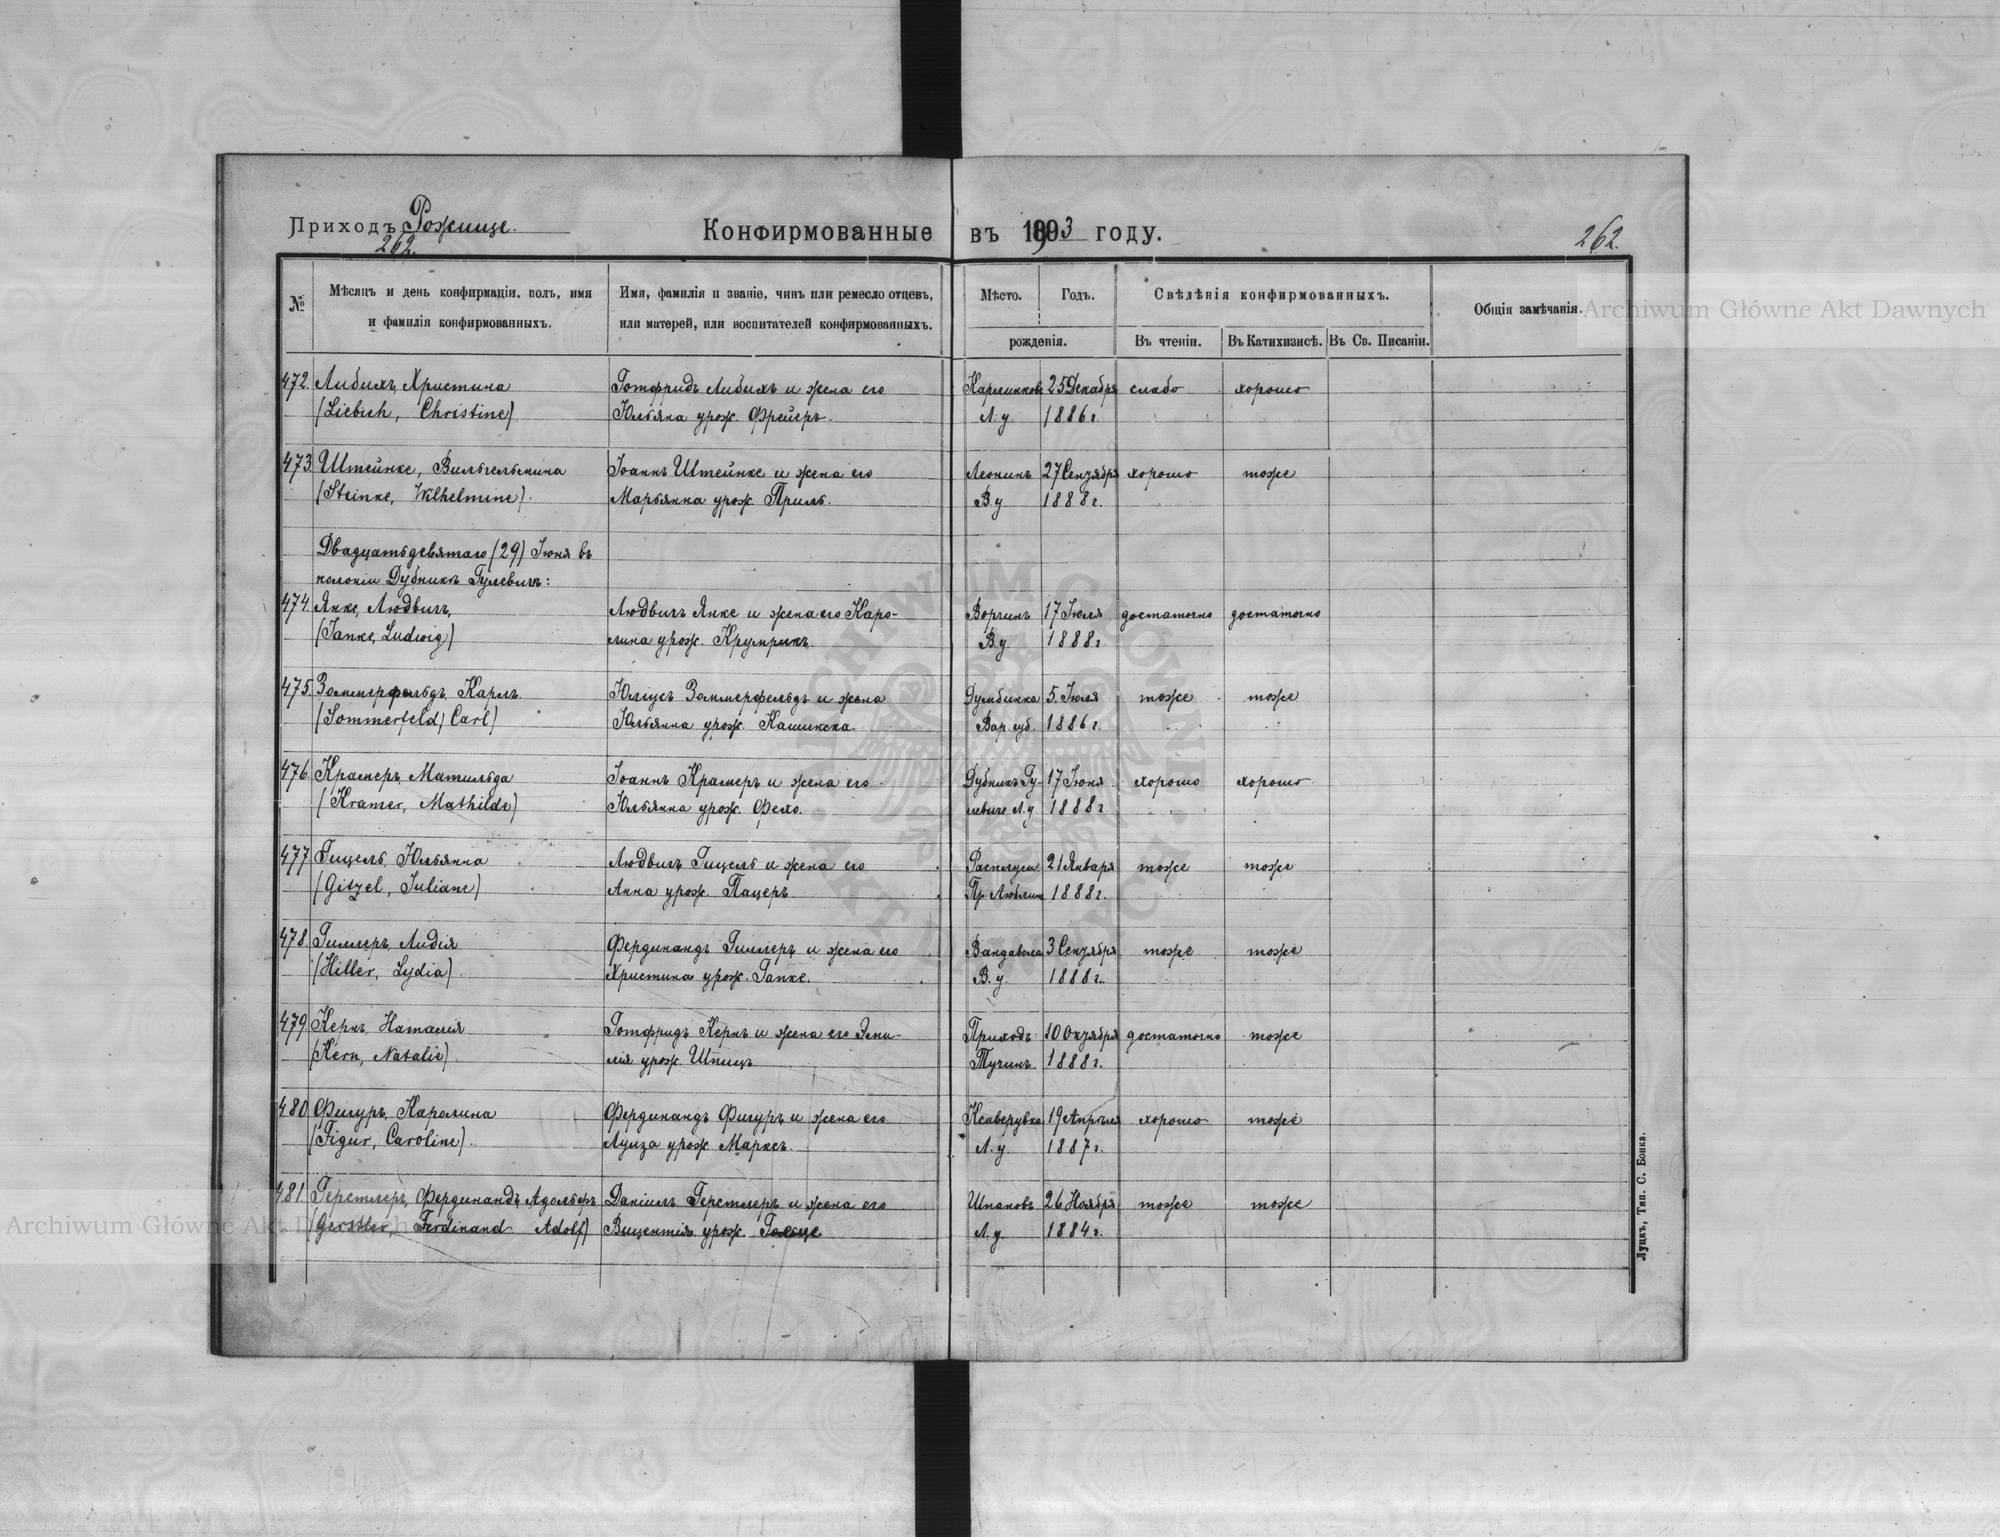 Приходъ Рожище.
262.
Конфирмованные въ 1903 году.
262.
№
Мѣсяцъ и день конфирмаціи, полъ, имя
и фамилія конфирмованныхъ.
Имя, фамилія и званіе, чинъ или ремесло отцевъ,
или матерей, или воспитателей конфирмованныхъ.
Мѣсто. Годъ.
рожденія.
Свѣдѣнія конфирмованныхъ.
Въ чтеніи. Въ Катихизисѣ. Въ Св. Писаніи.
Общія замѣчанія.
Archiwum Główne Akt Dawnych
472. Либихъ, Христина Готфридъ Либихъ и жена его 25 Декабря слабо хорошо
(Liebich, Christine) Юльяна урож. Фрейеръ. Л. у. 1886 г.
473. Штейнке, Вильгельмина Іоаннъ Штейнке и жена его Леонинъ 27 Сентября хорошо тоже
(Steinke, Wilhelmine). Марьянна урож. Приль. В. у 1888 г.
Двадцатьдевятаго (29) Іюня въ
колоніи Дубникъ Гулевичъ:
474. Янке, Людвигъ, Людвигъ Янке и жена его Каро- Воргинъ 17 Іюля достаточно достаточно
(Janke, Ludwig) лина урож. Крумрикъ. В. у. 1888 г.
475. Зоммерфельдъ, Карлъ. Юліусъ Зоммерфельдъ и жена Думбинка 5. Іюля тоже тоже
(Sommerfeld, Carl) Юльянна урож. Кашинска. Вар. губ. 1886 г.
476. Крамеръ, Матильда Іоаннъ Крамеръ и жена его Дубникъ Гу- 17 Іюня хорошо хорошо
(Kramer, Mathilde) Юльянна урож. левиче Л. у. 1888 г.
477. Гицель, Юльянна Людвигъ Гицель и жена его 21 Января тоже тоже
(Gitzel, Juliane) Анна урож. Пацеръ. 1888 г.
478. Гиллеръ, Лидія Фердинандъ Гиллеръ и жена его Вандавола 3 Сентября тоже тоже
(Hiller, Lydia) Христина урож. Гапке. В. у. 1888 г.
479. Кернъ, Наталія Готфридъ Кернъ и жена его Эми- Приходъ 10 Октября достаточно тоже
(Kern, Natalie) лія урож. Шпицъ Тучинъ 1888 г.
480. Фигуръ, Каролина Фердинандъ Фигуръ и жена его Ксаверувка 19 Апрѣля хорошо тоже
(Figur, Caroline). Луиза урож. Марксъ. Л. у. 1887 г.
481. Герстлеръ, Фердинандъ Адольфъ Даніилъ Герстлеръ и жена его Шпановъ 26 Ноября тоже тоже
(Gerstler, Ferdinand Adolf) Вицентія урож. Л. у. 1884 г.
Луцкъ, Тип. С. Бонка.
Archiwum Główne Akt Dawnych